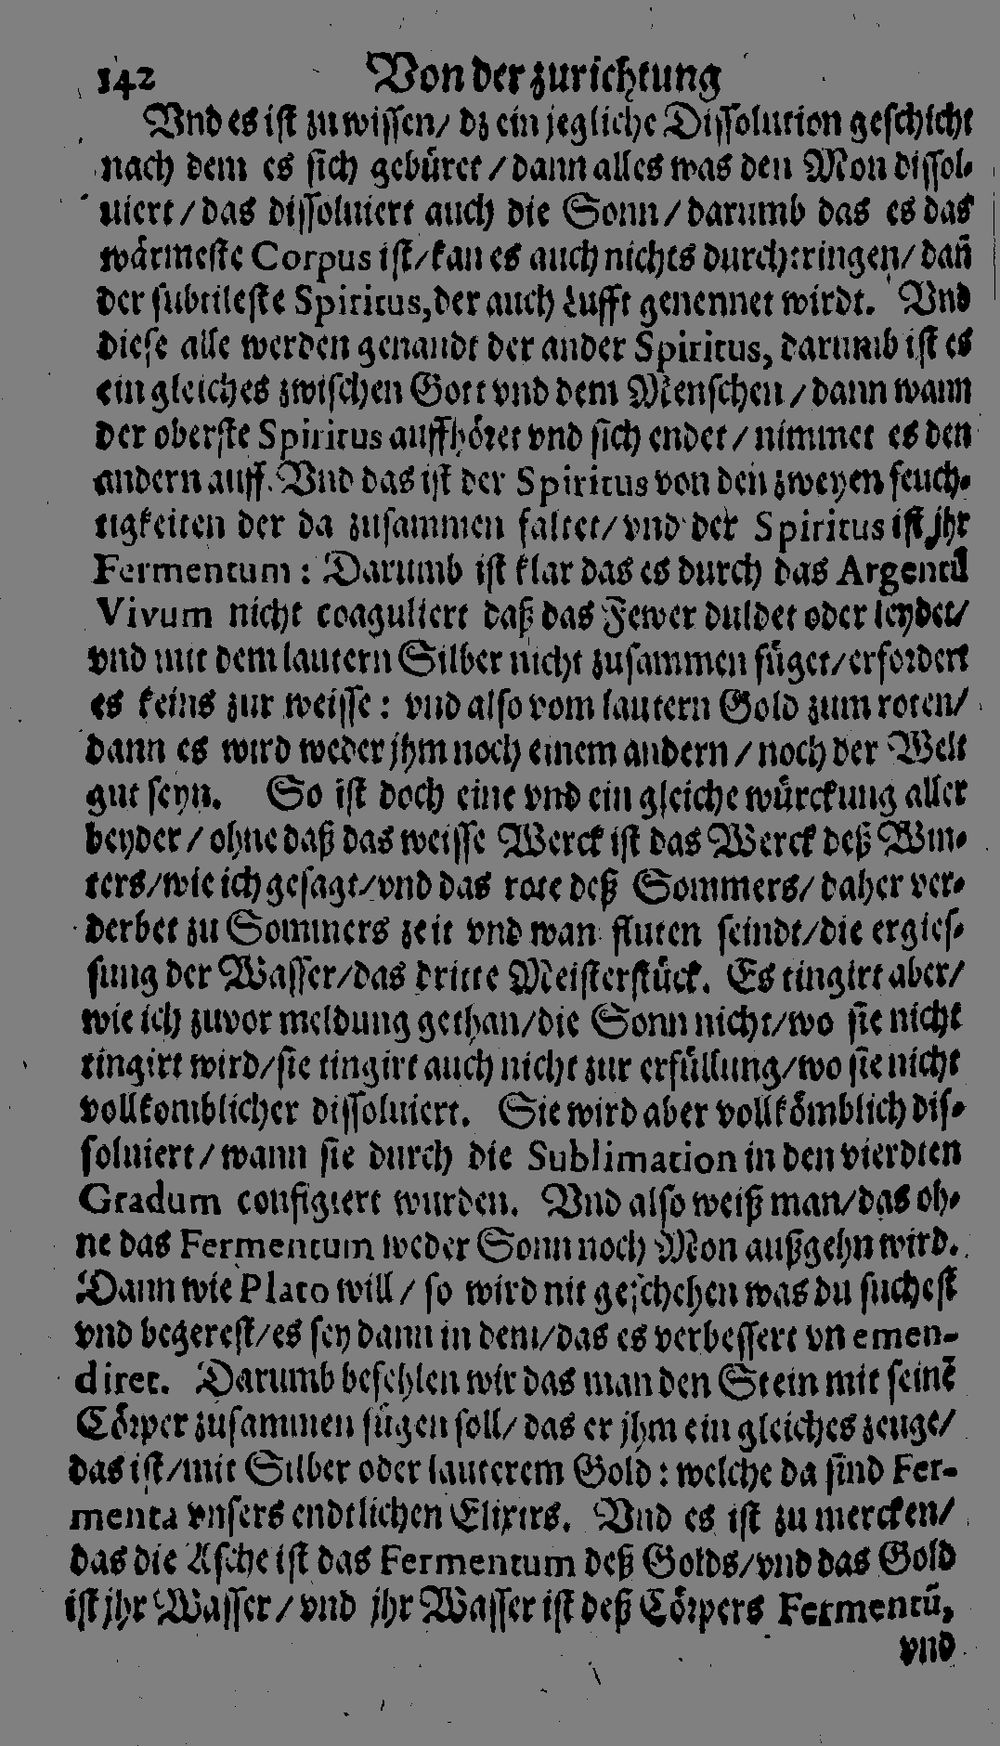 142 Von der zurichtung
Vnd es ist zu wissen/ dz ein jegliche Dissolution geschicht
nach dem es sich gebüret / dann alles was den Mon dissol-
uiert / das dissoluiert auch die Sonn / darumb das es das
wärmeste Corpus ist/ kan es auch nichts durchtringen/ dañ
der subtileste Spiritus, der auch Lufft genennet wirdt. Vnd
diese alle werden genandt der ander Spiritus, darumb ist es
ein gleiches zwischen Gott vnd dem Menschen / dann wann
der oberste Spiritus auffhöret vnd sich endet / nimmet es den
andern auff. Vnd das ist der Spiritus von den zweyen feuch-
tigkeiten der da zusammen faltet/ vnd der Spiritus ist jhr
Fermentum : Darumb ist klar das es durch das Argentū
Vivum nicht coaguliert daß das Fewer duldet oder leydet/
vnd mit dem lautern Silber nicht zusammen füget/ erfordert
es keins zur weisse : vnd also vom lautern Gold zum roten/
dann es wird weder jhm noch einem andern / noch der Welt
gut seyn. So ist doch eine vnd ein gleiche würckung aller
beyder / ohne daß das weisse Werck ist das Werck deß Win-
ters/ wie ich gesagt/ vnd das rote deß Sommers/ daher ver-
derbet zu Sommers zeit vnd wan fluten seindt/ die ergies-
sung der Wasser/ das dritte Meisterstück. Es tingirt aber/
wie ich zuvor meldung gethan/ die Sonn nicht/ wo sie nicht
tingirt wird/ sie tingirt auch nicht zur erfüllung/ wo sie nicht
vollkomblicher dissoluiert. Sie wird aber vollkömblich dis-
soluiert / wann sie durch die Sublimation in den vierdten
Gradum configiert wurden. Vnd also weiß man/ das oh-
ne das Fermentum weder Sonn noch Mon außgehn wird.
Dann wie Plato will / so wird nit geschehen was du suchest
vnd begerest/ es sey dann in dem/ das es verbessert vn emen-
diret. Darumb befehlen wir das man den Stein mit seinē
Cörper zusammen fügen soll/ das er jhm ein gleiches zeuge/
das ist/ mit Silber oder lauterem Gold : welche da sind Fer-
menta vnsers endtlichen Elixirs. Vnd es ist zu mercken/
das die Asche ist das Fermentum deß Golds/ vnd das Gold
ist jhr Wasser / vnd jhr Wasser ist deß Cörpers Fermentū,
vnd